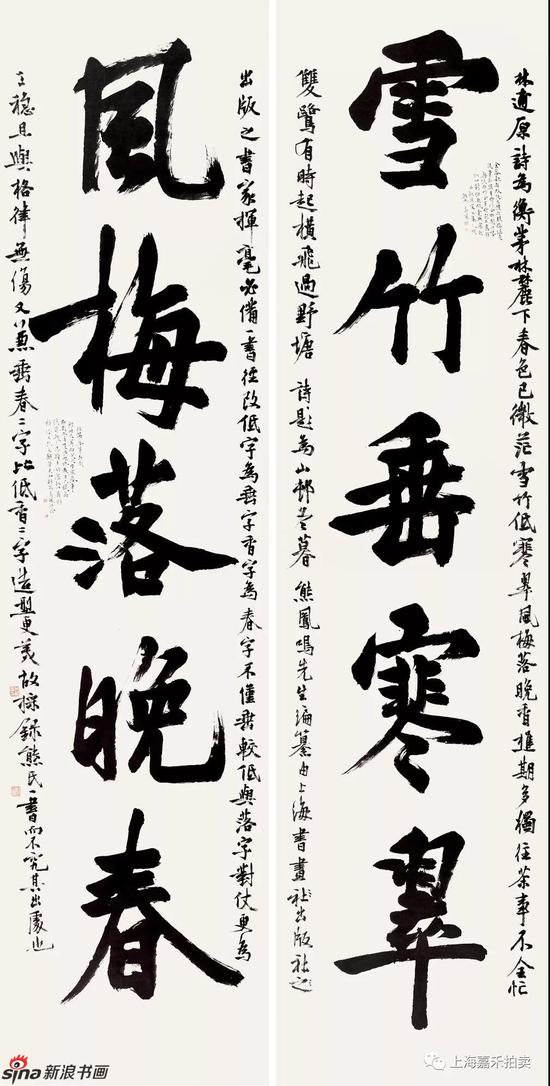 林逋原詩為衡茅林麓下春色已微茫雪竹低寒翠風梅落晚香樵期多獨往茶事不全忙
雪竹垂寒翠
雙鷺有時起橫飛過野塘 詩題為山邨冬暮 熊鳳鳴先生編纂由上海書畫社出版社之
出版之書家揮毫必備一書徑改低字為垂字香字為春字不僅垂較低與落字對仗更為
風梅落晚春
工穩且與格律無傷又垂春二字比低香二字造型更美故採錄熊氏一書而不究其出處也
sina 新浪书画
上海嘉禾拍卖